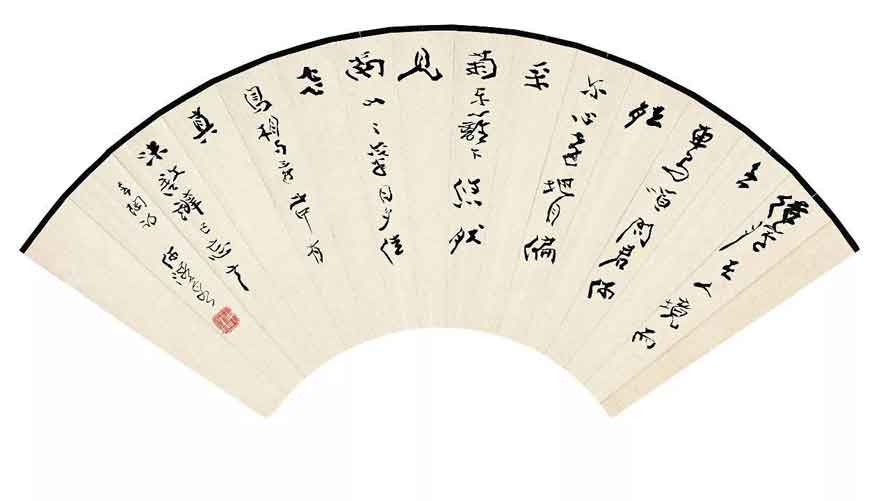 結廬在人境而
無
車馬喧問君何
能
尔心遠地自偏
采
菊東籬下悠然
見
南山山氣日夕佳
飛
鳥相与還此中有
真
意欲辯已忘言